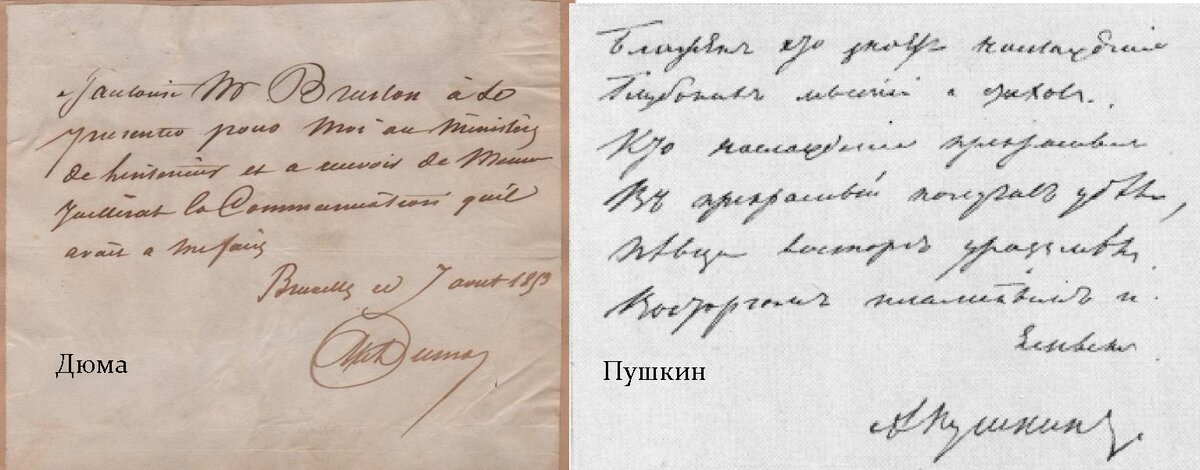 Jautorise Mr Bruslon à se
presenter pour moi au Ministère
de linterieur et a recevoir de
la Communication quil
avait a me faire
Bruxelles ce 7 aout 1853
Alex Dumas
Дюма
Блаженъ кто знаетъ наслажденiе
Глубокихъ мыслей и стиховъ..
Кто наслажденiе прекраснымъ
Въ прекрасный получилъ удѣлъ,
Пѣвца восторгъ уразумѣлъ
Восторгомъ пламеннымъ и
А Пушкинъ.
Пушкин